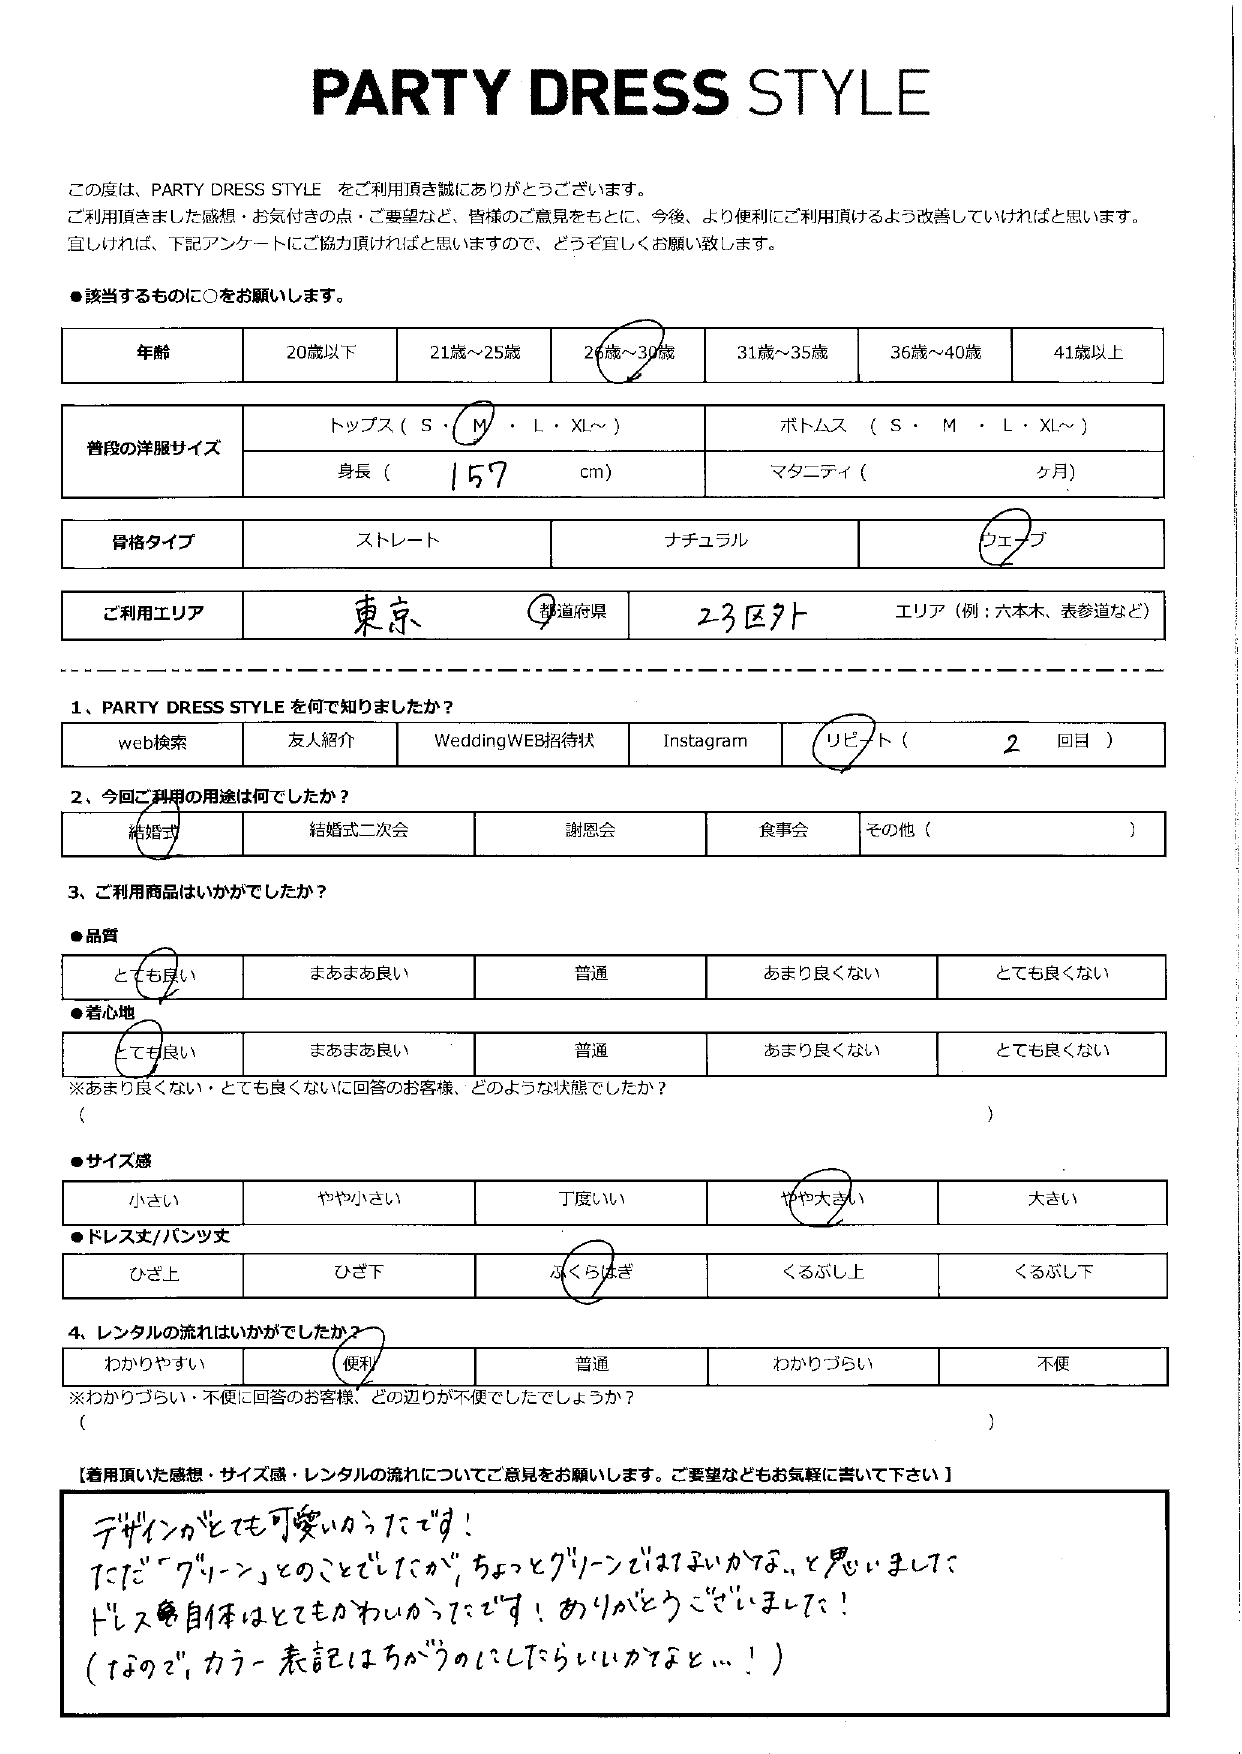 PARTY DRESS STYLE
この度は、PARTY DRESS STYLE をご利用頂き誠にありがとうございます。
ご利用頂きました感想・お気付きの点・ご要望など、皆様のご意見をもとに、今後、より便利にご利用頂けるよう改善していければと思います。
宜しければ、下記アンケートにご協力頂ければと思いますので、どうぞ宜しくお願い致します。
●該当するものに○をお願いします。
年齢 20歳以下 21歳～25歳 26歳～30歳 31歳～35歳 36歳～40歳 41歳以上
普段の洋服サイズ トップス ( S ・ M ・ L ・ XL～ ) ボトムス ( S ・ M ・ L ・ XL～ )
身長 ( 157 cm) マタニティ ( ヶ月)
骨格タイプ ストレート ナチュラル ウェーブ
ご利用エリア 東京 都道府県 23区外 エリア（例：六本木、表参道など）
1、PARTY DRESS STYLE を何で知りましたか？
web検索 友人紹介 WeddingWEB招待状 Instagram リピート ( 2 回目 )
2、今回ご利用の用途は何でしたか？
結婚式 結婚式二次会 謝恩会 食事会 その他 ( )
3、ご利用商品はいかがでしたか？
●品質
とても良い まあまあ良い 普通 あまり良くない とても良くない
●着心地
とても良い まあまあ良い 普通 あまり良くない とても良くない
※あまり良くない・とても良くないに回答のお客様、どのような状態でしたか？
( )
●サイズ感
小さい やや小さい 丁度いい やや大きい 大きい
●ドレス丈/パンツ丈
ひざ上 ひざ下 ふくらはぎ くるぶし上 くるぶし下
4、レンタルの流れはいかがでしたか？
わかりやすい 便利 普通 わかりづらい 不便
※わかりづらい・不便に回答のお客様、どの辺りが不便でしたでしょうか？
( )
【着用頂いた感想・サイズ感・レンタルの流れについてご意見をお願いします。ご要望などもお気軽に書いて下さい】
デザインがとても可愛いかったです！
ただ「グリーン」とのことでしたが、ちょっとグリーンではないかな、、と思いました
ドレス自体はとてもかわいかったです！ありがとうございました！
(なので、カラー表記はちがうのにしたらいいかなと…！)